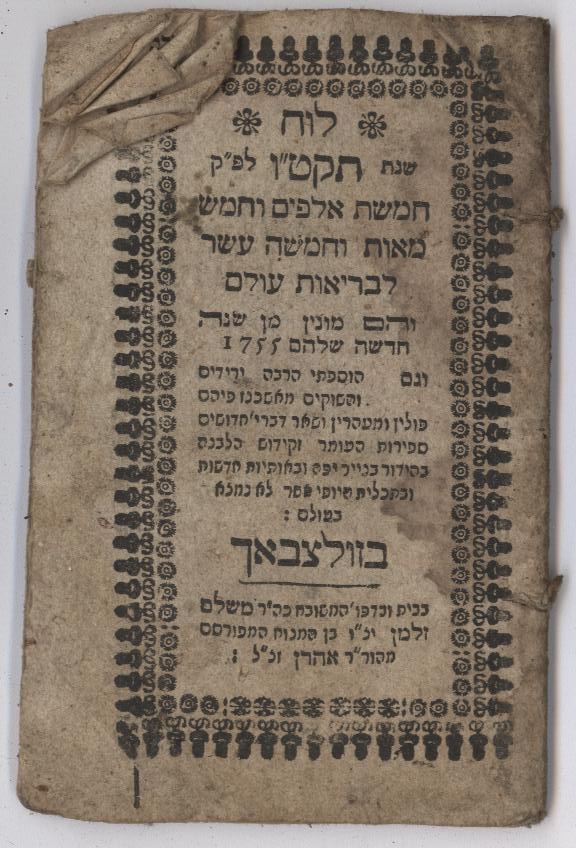 לוח
שנת תקט"ו לפ"ק
חמשת אלפים וחמש
מאות וחמשה עשר
לבריאות עולם
והם מונין מן שנה
חדשה שלהם 1755
וגם הוספתי הרבה ירידים
והשוקים מאשכנז פיהם
פולין ומעהרין ושאר דברי' חדושים
ספירות העומר וקידוש הלבנה
בהידור בנייר יפה ובאותיות חדשות
ובתכלית היופי אשר לא נמצא
בעולם :
בזולצבאך
בבית ובדפו' המשובח כה"ר משלם
זלמן יצ"ו בן המנוח המפורסם
מהור"ר אהרן זצ"ל :